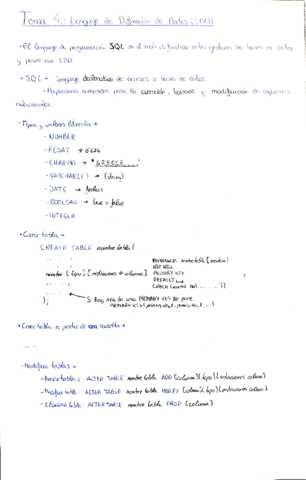 Tema 4: Lenguaje de Definición de Datos (LDD)
· El lenguaje de programación SQL es el más difundido entre gestores de bases de datos
y posee un LDD.
· SQL → Lenguaje declarativo de acceso a bases de datos.
- Proporciona comandos para la creación, borrado y modificación de esquemas
relacionales.
· Tipos y valores
- NUMBER
- FLOAT → 0.624
- CHAR (9) →
- VARCHAR2 ( ) → (string)
- DATE → fechas
- BOOLEAN → true o false
- INTEGER
· Crear tabla →
CREATE TABLE nombre tabla (
REFERENCES nombre tabla [nombre]
NOT NULL
nombre [tipo] [restricciones de columna] PRIMARY KEY
DEFAULT
CHECK (
- - - - -
); Si hay más de una PRIMARY KEY se pone:
PRIMARY KEY (
· Crear tabla a partir de una consulta →
· Modificar tablas →
- Añadir tabla: ALTER TABLE nombre tabla ADD [columna] [tipo] [restricciones columna]
- Modificar tabla: ALTER TABLE nombre tabla MODIFY [columna] [tipo] [restricciones columna]
- Eliminar tabla: ALTER TABLE nombre tabla DROP [columna]